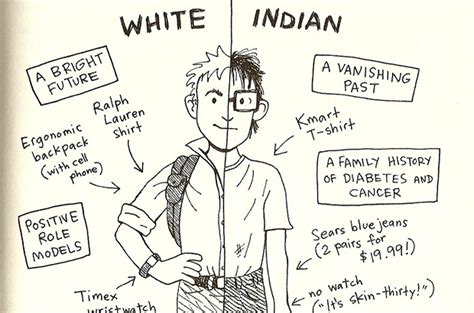 WHITE INDIAN
A BRIGHT
FUTURE
Ralph
Lauren
shirt
Ergonomic
backpack
(with cell
phone)
POSITIVE
ROLE
MODELS
Timex
wristwatch
A VANISHING
PAST
Kmart
T-shirt
A FAMILY HISTORY
OF DIABETES AND
CANCER
Sears blue jeans
(2 pairs for
$19.99!)
no watch
("It's skin-thirty!")